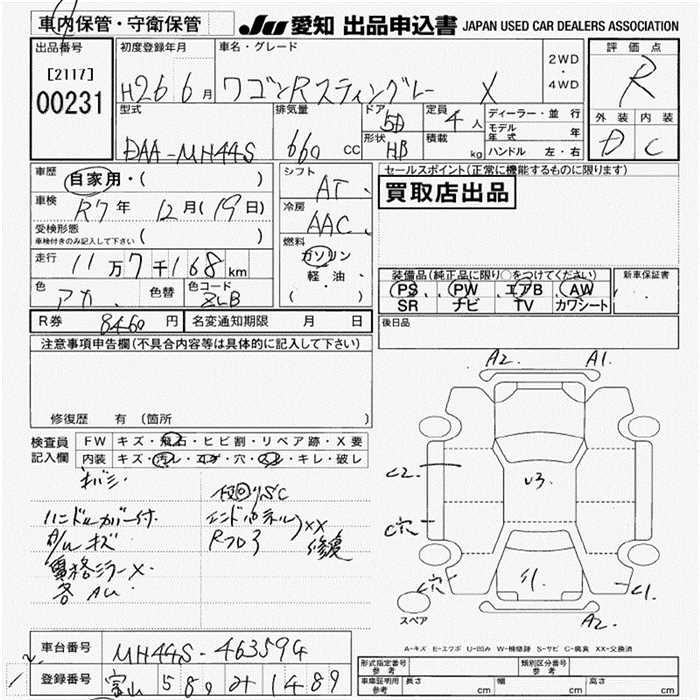 車内保管・守衛保管
JU 愛知 出品申込書 JAPAN USED CAR DEALERS ASSOCIATION
出品番号
[2117]
00231
初度登録年月
H26 6月
車名・グレード
ワゴンRスティングレー X
2WD
・
4WD
評価点
R
外装 内装
D C
型式
DAA-MH44S
排気量
660 cc
ドア
5D
形状
HB
定員
4人
積載
kg
ディーラー・並行
モデル年式 年
ハンドル 左・右
車歴
自家用・( )
車検
R7年 12月(19日)
受検形態
車検付きのみ記入して下さい ( )
走行
11万7千168km
色
アカ
色替
色コード
ZLB
シフト
AT
冷房
AAC
燃料
ガソリン
軽・油
( )
セールスポイント(正常に機能するものに限ります)
買取店出品
装備品(純正品に限り○をつけてください)
PS PW エアB AW
SR ナビ TV カワシート
新車保証書
後日品
R券 8460円
名変通知期限 月 日
注意事項申告欄(不具合内容等は具体的に記入して下さい)
修復歴 有(箇所
検査員
記入欄
FW キズ・飛石・ヒビ割・リペア跡・X要
内装 キズ・汚レ・コゲ・穴・スレ・キレ・破レ
ハンドルカバー付
キズ
電格ミラーX
各AU
エンドパネルXX
修復
A2 A1
C2
U3
C穴
C穴
C1
A2
スペア
A-キズ E-エクボ U-凹み W-補修跡 S-サビ C-腐食 XX-交換済
車台番号 MH44S-463594
登録番号 富山 580 み 1489
形式指定番号
参考
類別区分番号
参考
車庫証明用
参考
長さ cm 幅 cm 高さ cm